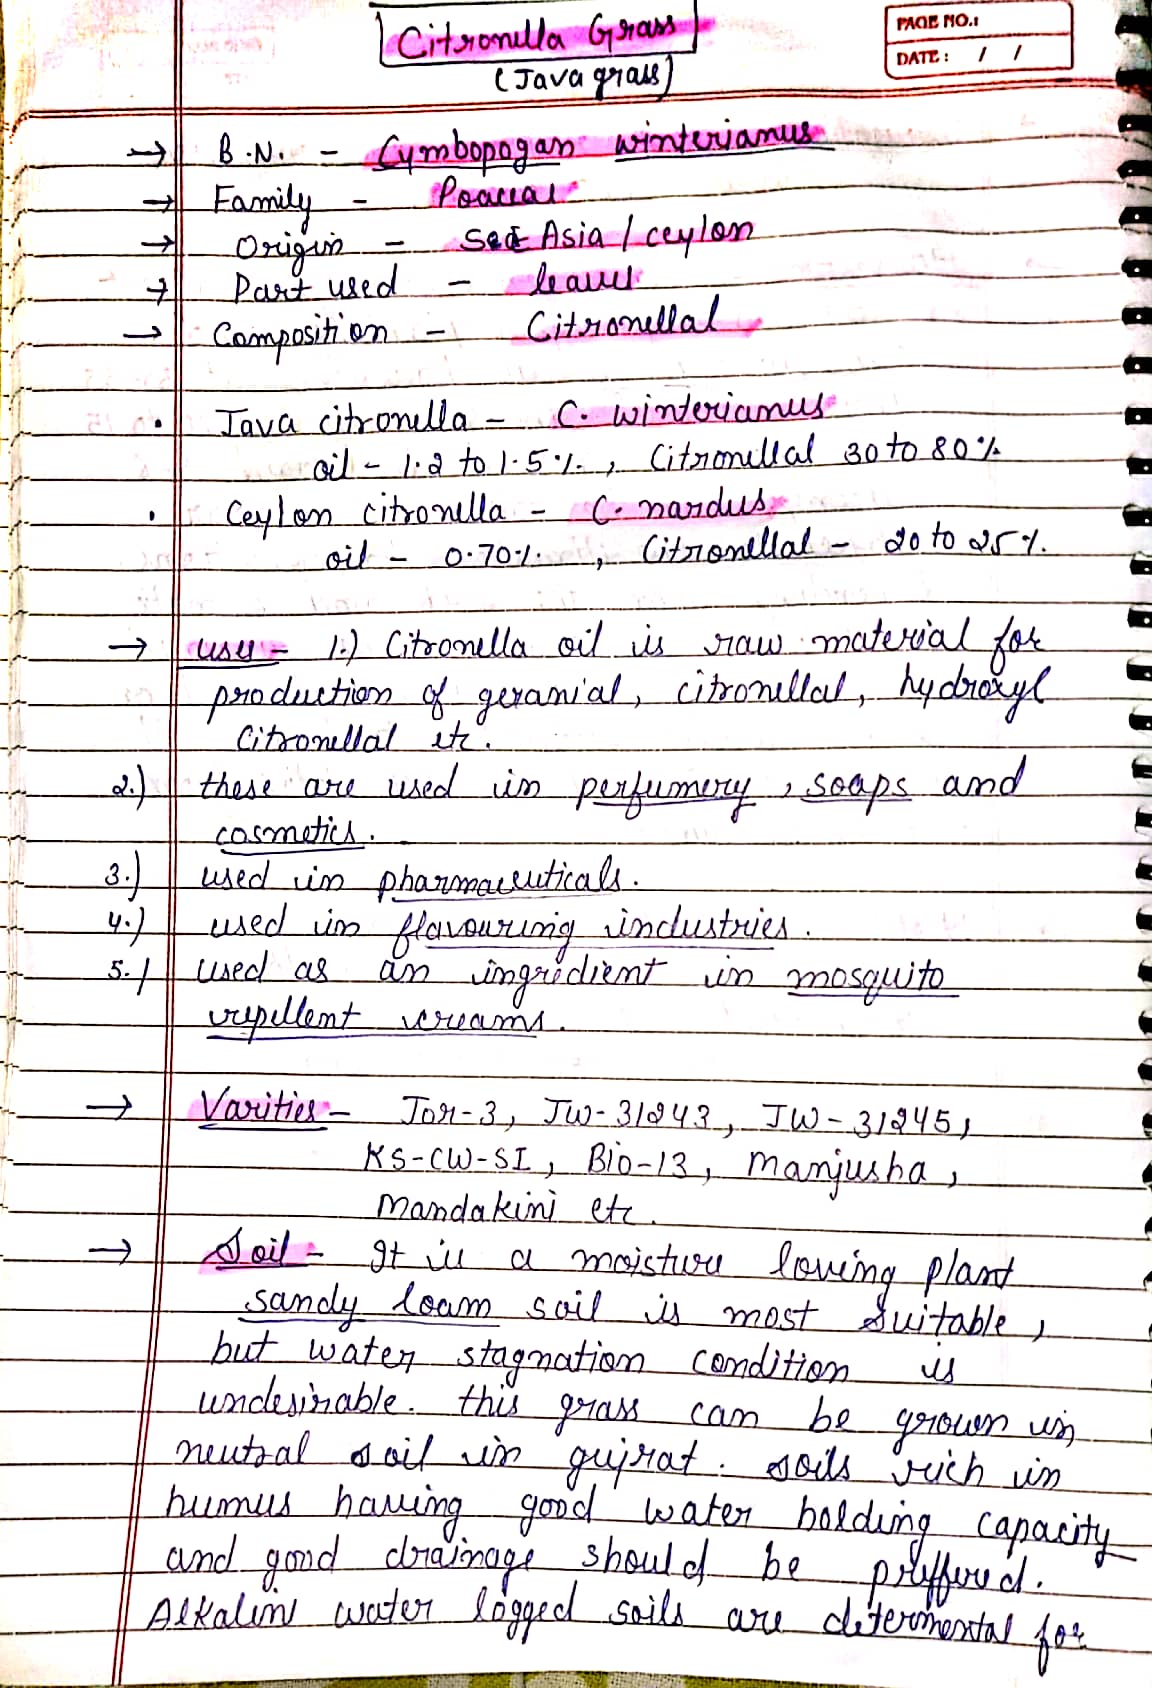 Citronella Grass
(Java grass)
PAGE NO.:
DATE: / /
→ B.N. - Cymbopogan winterianus
→ Family - Poaceae
→ Origin - Asia / ceylon
→ Part used - leaves
→ Composition - Citronellal
. Java citronella - C. winterianus
oil - 1.2 to 1.5%, Citronellal 30 to 80%
. Ceylon citronella - C. nardus
oil - 0.70%, Citronellal - 20 to 25%.
→ uses - 1.) Citronella oil is raw material for
production of geranial, citronellal, hydroxyl
Citronellal etc.
2.) these are used in perfumery, soaps and
cosmetics.
3.) used in pharmaceuticals.
4.) used in flavouring industries.
5.) used as an ingredient in mosquito
repellent creams.
→ Varities - Jor-3, JW-31243, JW-31245,
KS-CW-SI, Bio-13, Manjusha,
Mandakini etc.
→ Soil - It is a moisture loving plant
sandy loam soil is most suitable,
but water stagnation condition is
undesirable. this grass can be grown in
neutral soil in gujrat. soils rich in
humus having good water holding capacity
and good drainage should be preffered.
Alkaline water logged soils are determental for